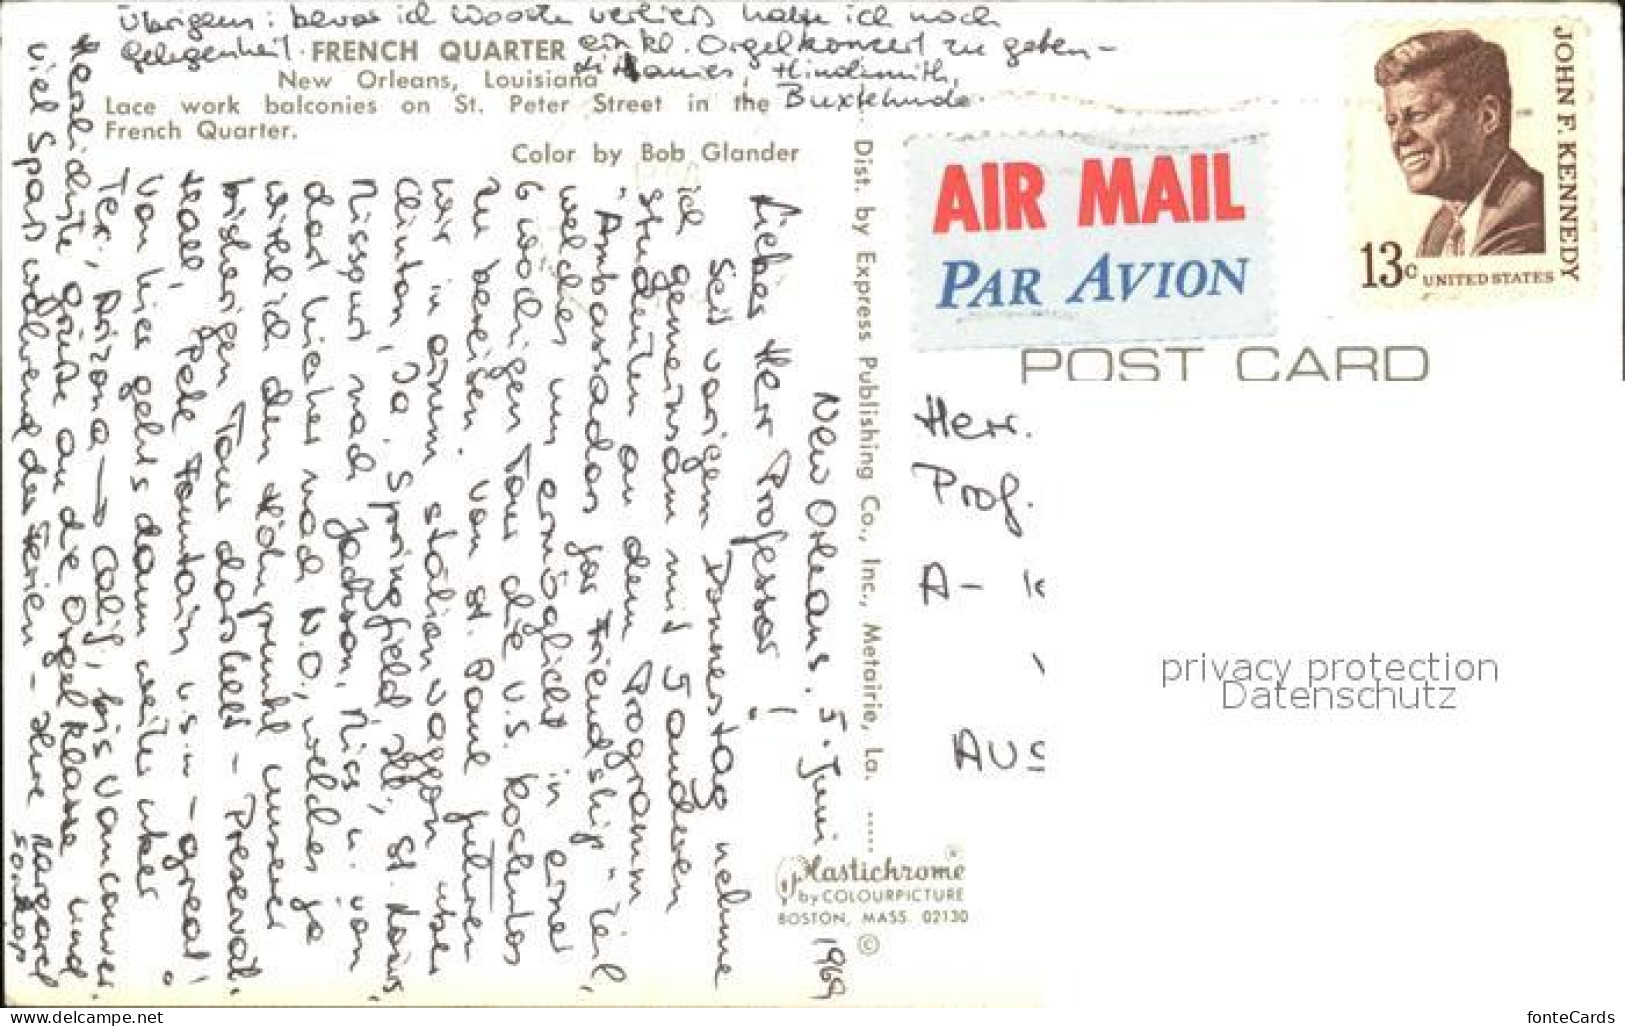 Übrigens: bevor ich Wooster verließ hatte ich noch
Gelegenheit ein kl. Orgelkonzert zu geben –
Hindemith,
Buxtehude.
FRENCH QUARTER
New Orleans, Louisiana
Lace work balconies on St. Peter Street in the
French Quarter.
Color by Bob Glander
New Orleans, 5. Juni 1969
Lieber Herr Professor!
Seit vorigem Donnerstag nehme
ich gemeinsam mit 5 anderen
Studenten an dem Programm
"Ambassador for Friendship" teil,
welches uns ermöglicht in einer
6 wöchigen Tour die U.S. kostenlos
zu bereisen. Von St. Paul fuhren
wir in einem station waggon über
Clinton, Io., Springfield, Ill., St. Louis,
Missouri nach Jackson, Miss u. von
dort hierher nach N.O., welches ja
wirklich den Höhepunkt unserer
bisherigen Tour darstellt – Preservat.
Hall, Pete Fountain u.s.w – great!
Von hier gehts dann weiter über
Tex., Arizona → Calif, bis Vancouver.
Herzlichste Grüße an die Orgelklasse und
viel Spaß während der Ferien – Ihre Margaret
Dist. by Express Publishing Co., Inc., Metairie, La. .....
Plastichrome ®
by COLOURPICTURE
BOSTON, MASS. 02130
©
AIR MAIL
PAR AVION
JOHN F. KENNEDY
13c UNITED STATES
POST CARD
Herr.
Prof.
A-
AUS
privacy protection
Datenschutz
www.delcampe.net
fonteCards